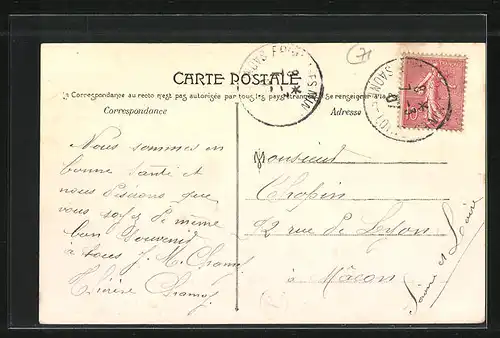 CARTE POSTALE
La Correspondance au recto n'est pas autorisée par tous les pays étrangers (Se renseigner à la
Correspondance
Adresse
Nous sommes en
bonne santé et
nous désirons que
vous soyez de même
bon souvenir
à tous J. M.
Monsieur
Chopin
92 rue de Lyon
à Mâcon
Saône et Loire
10
71